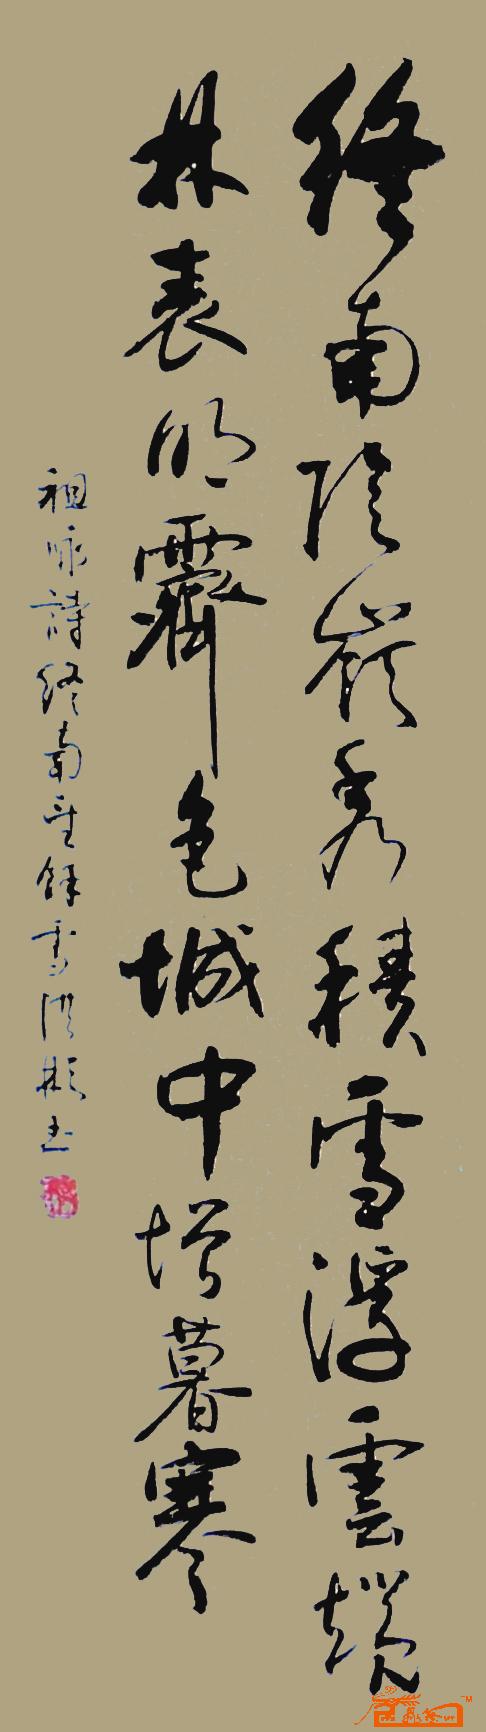 終南陰嶺秀積雪浮雲端
林表明霽色城中增暮寒
祖咏詩終南望餘雪洪彬书